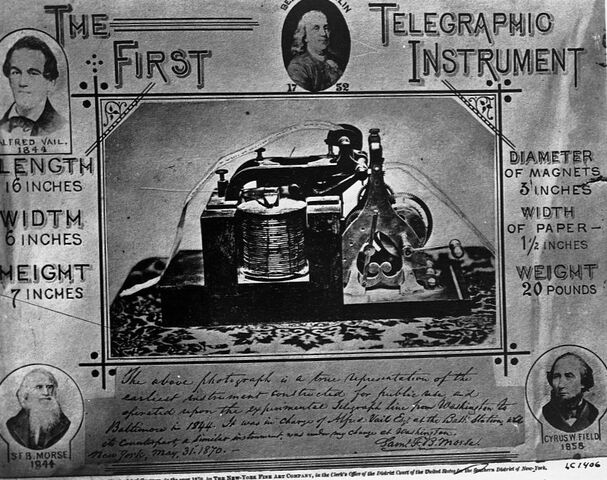 THE FIRST
TELEGRAPHIC
INSTRUMENT
1752
ALFRED VAIL.
1844
LENGTH
16 INCHES
WIDTH
6 INCHES
HEIGHT
7 INCHES
DIAMETER
OF MAGNETS
3 INCHES
WIDTH
OF PAPER—
1½ INCHES
WEIGHT
20 POUNDS
The above photograph is a true representation of the
earliest instrument constructed for public use, and
operated upon the experimental telegraph line from Washington to
Baltimore in 1844. It was in charge of Alfred Vail Esq at the Balt. Station, and
its counterpart, a similar instrument, was under my charge at Washington.
New York, May, 31. 1870. — Saml. F. B. Morse.
S.F.B. MORSE
1844
CYRUS W. FIELD
1858
in the year 1870, in THE NEW-YORK FINE ART COMPANY, in the Clerk's Office of the District Court of the United States for the Southern District of New-York.
LC1406